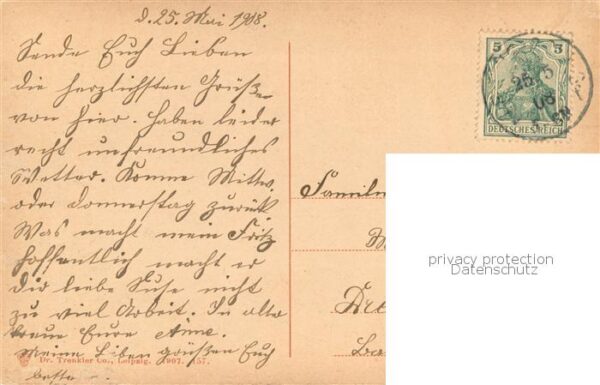 d. 25. Mai 1908.
Sende Euch Lieben
die herzlichsten Grüße
von hier. Haben leider
recht unfreundliches
Wetter. Komme Mittw.
oder Donnerstag zurück
Was macht mein Fritz
hoffentlich macht er
Dir liebe Suse nicht
zu viel Arbeit. In alter
treue Eure Anne.
Meine Lieben grüßen Euch
bestens
Dr. Trenkler Co., Leipzig. 1907. 57.
5 5
25 5
08
DEUTSCHES REICH
Familie
Dre
privacy protection
Datenschutz